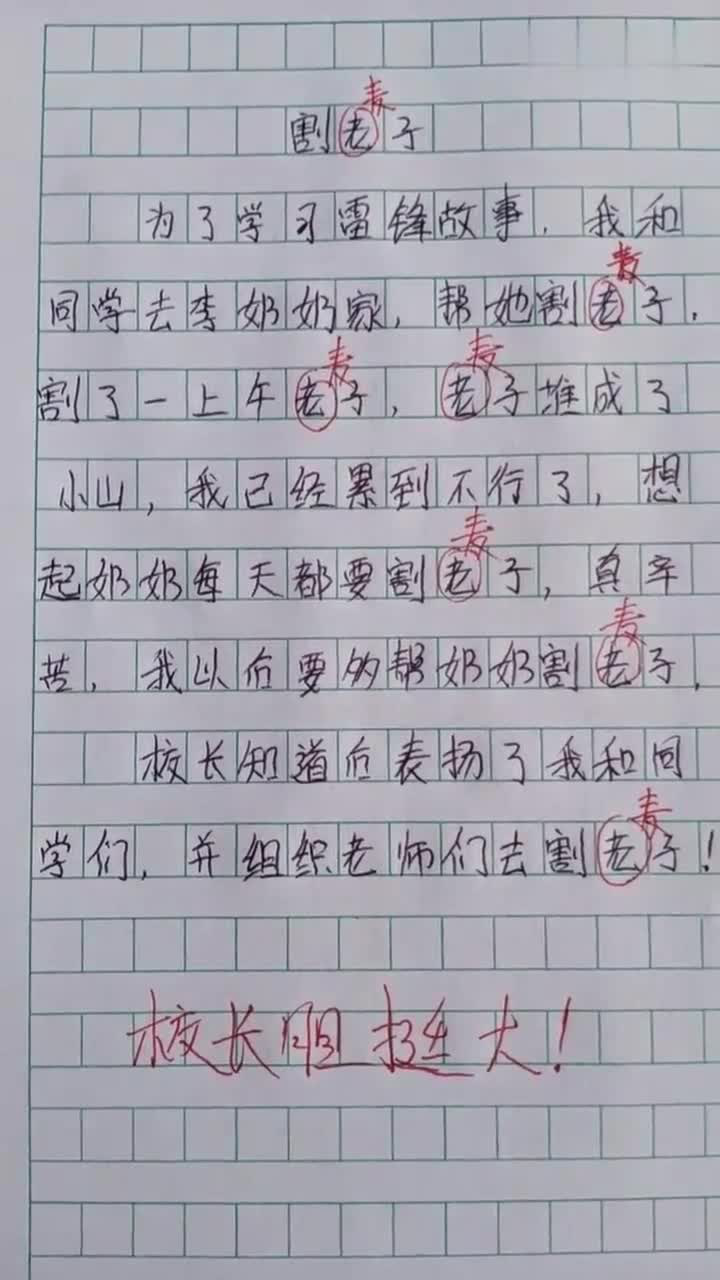 麦
割老子
为了学习雷锋故事，我和
麦
同学去李奶奶家，帮她割老子，
麦 麦
割了一上午老子，老子堆成了
小山，我已经累到不行了，想
麦
起奶奶每天都要割老子，真辛
麦
苦，我以后要多帮奶奶割老子，
校长知道后表扬了我和同
麦
学们，并组织老师们去割老子！
校长胆挺大！